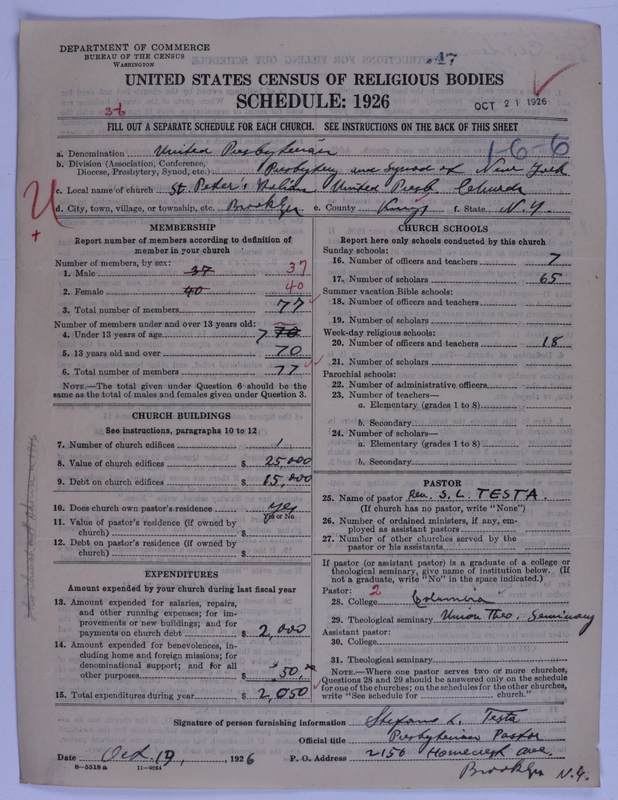 DEPARTMENT OF COMMERCE
BUREAU OF THE CENSUS
WASHINGTON
47
UNITED STATES CENSUS OF RELIGIOUS BODIES
SCHEDULE: 1926
OCT 21 1926
36
FILL OUT A SEPARATE SCHEDULE FOR EACH CHURCH. SEE INSTRUCTIONS ON THE BACK OF THIS SHEET
1-6-6
a. Denomination United Presbyterian
b. Division (Association, Conference, Diocese, Presbytery, Synod, etc.) Presbytery and Synod of New York
c. Local name of church St. Peter's Italian United Presb Church
d. City, town, village, or township, etc. Brooklyn e. County Kings f. State N.Y.
MEMBERSHIP
Report number of members according to definition of
member in your church
Number of members, by sex:
1. Male 37 37
2. Female 40 40
3. Total number of members 77
Number of members under and over 13 years old:
4. Under 13 years of age 7 70
5. 13 years old and over 70
6. Total number of members 77
NOTE.—The total given under Question 6 should be the
same as the total of males and females given under Question 3.
CHURCH BUILDINGS
See instructions, paragraphs 10 to 12
7. Number of church edifices 1
8. Value of church edifices $ 25,000
9. Debt on church edifices $ 15,000
10. Does church own pastor's residence yes
Yes or No
11. Value of pastor's residence (if owned by
church) $
12. Debt on pastor's residence (if owned by
church) $
EXPENDITURES
Amount expended by your church during last fiscal year
13. Amount expended for salaries, repairs,
and other running expenses; for im-
provements or new buildings; and for
payments on church debt $ 2,000
14. Amount expended for benevolences, in-
cluding home and foreign missions; for
denominational support; and for all
other purposes $ 50,
15. Total expenditures during year $ 2,050
CHURCH SCHOOLS
Report here only schools conducted by this church
Sunday schools:
16. Number of officers and teachers 7
17. Number of scholars 65
Summer vacation Bible schools:
18. Number of officers and teachers
19. Number of scholars
Week-day religious schools:
20. Number of officers and teachers 18
21. Number of scholars
Parochial schools:
22. Number of administrative officers
23. Number of teachers—
a. Elementary (grades 1 to 8)
b. Secondary
24. Number of scholars—
a. Elementary (grades 1 to 8)
b. Secondary
PASTOR
25. Name of pastor Rev. S. L. TESTA
(If church has no pastor, write "None")
26. Number of ordained ministers, if any, em-
ployed as assistant pastors
27. Number of other churches served by the
pastor or his assistants
If pastor (or assistant pastor) is a graduate of a college or
theological seminary, give name of institution below. (If
not a graduate, write "No" in the space indicated.)
Pastor: 2
28. College Columbia
29. Theological seminary Union Theo. Seminary
Assistant pastor:
30. College
31. Theological seminary
NOTE.—Where one pastor serves two or more churches,
Questions 28 and 29 should be answered only on the schedule
for one of the churches; on the schedules for the other churches,
write "See schedule for church."
Signature of person furnishing information Stefano L. Testa
Official title Presbyterian Pastor
Date Oct. 19, 1926 P. O. Address 2156 Homecrest Ave.
8-5318 a 11-9264
Brooklyn N.Y.